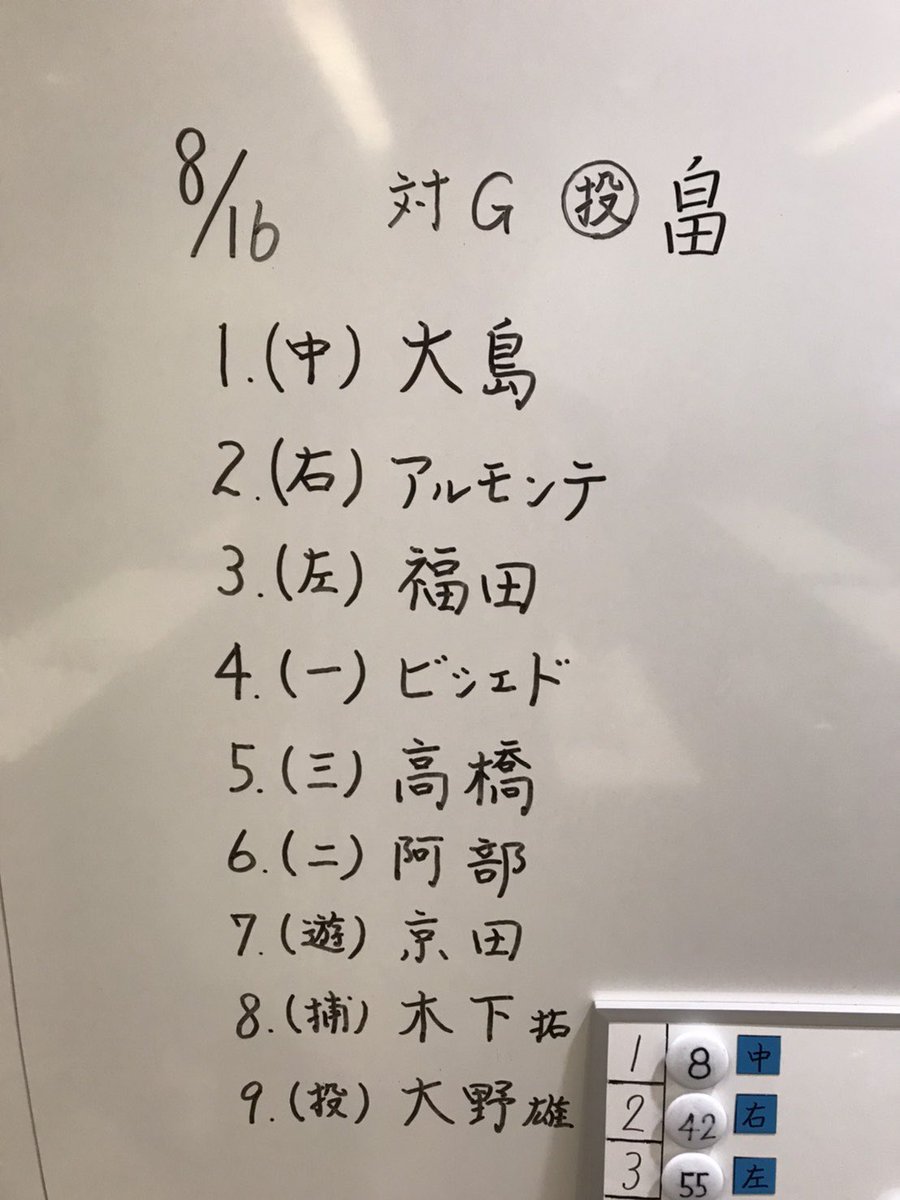 8/16 対G ㊞投 畠
1.(中)大島
2.(右)アルモンテ
3.(左)福田
4.(一)ビシエド
5.(三)高橋
6.(二)阿部
7.(遊)京田
8.(捕)木下拓
9.(投)大野雄
1 8 中
2 42 右
3 55 左